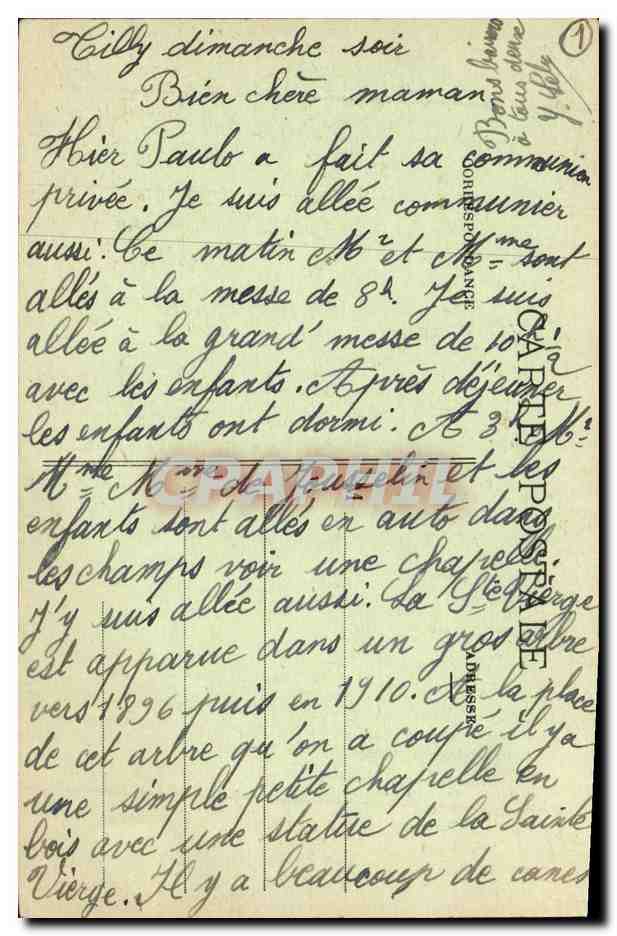 Tilly dimanche soir
Bien chère maman
Hier Paulo a fait sa communion
privée. Je suis allée communier
aussi. Ce matin Mr et Mme sont
allés à la messe de 8h. Je suis
allée à la grand' messe de 10h1/2
avec les enfants. Après déjeuner
les enfants ont dormi. A 3h Mr
Mme Mme de et les
enfants sont allés en auto dans
les champs voir une chapelle.
J'y suis allée aussi. La Ste Vierge
est apparue dans un gros arbre
vers 1896 puis en 1910. A la place
de cet arbre qu'on a coupé il y a
une simple petite chapelle en
bois avec une statue de la Sainte
Vierge. Il y a beaucoup de canes
Bons baisers
à tous deux
1
CORRESPONDANCE
CARTE POSTALE
ADRESSE
CPARAMA